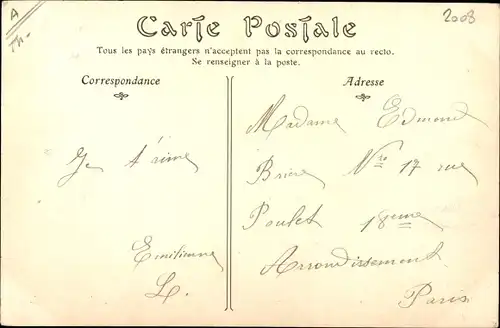 A
Th.
2008
Carte Postale
Tous les pays étrangers n'acceptent pas la correspondance au recto.
Se renseigner à la poste.
Correspondance
Je t'aime
Emilienne
L.
Adresse
Madame Edmond
Brière No 17 rue
Poulet 18eme
Arrondissement
Paris